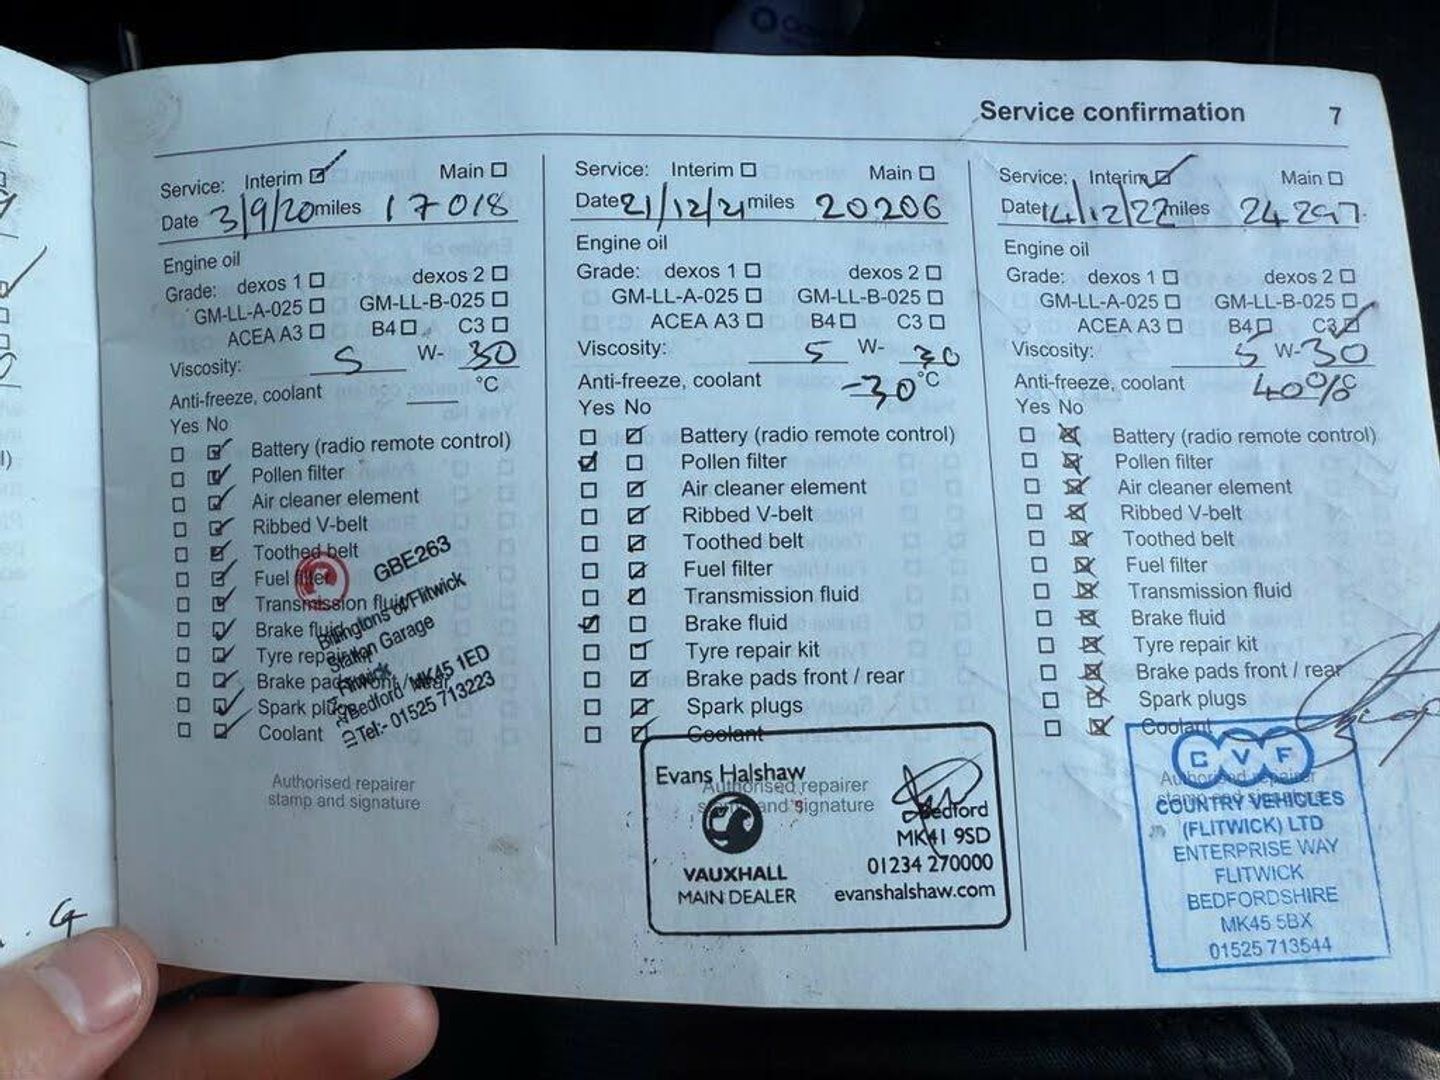 Service confirmation 7
Service: Interim Main
Date 3/9/20 miles 17018
Engine oil
Grade: dexos 1 dexos 2
GM-LL-A-025 GM-LL-B-025
ACEA A3 B4 C3
Viscosity: 5 W- 30
Anti-freeze, coolant °C
Yes No
Battery (radio remote control)
Pollen filter
Air cleaner element
Ribbed V-belt
Toothed belt
Fuel filter
Transmission fluid
Brake fluid
Tyre repair
Brake pads front / rear
Spark plugs
Coolant
GBE263
Billingtons of Flitwick
Station Garage
Flitwick
Bedford MK45 1ED
Tel:- 01525 713223
Authorised repairer
stamp and signature
Service: Interim Main
Date 21/12/21 miles 20206
Engine oil
Grade: dexos 1 dexos 2
GM-LL-A-025 GM-LL-B-025
ACEA A3 B4 C3
Viscosity: 5 W- 30
Anti-freeze, coolant -30°C
Yes No
Battery (radio remote control)
Pollen filter
Air cleaner element
Ribbed V-belt
Toothed belt
Fuel filter
Transmission fluid
Brake fluid
Tyre repair kit
Brake pads front / rear
Spark plugs
Coolant
Authorised repairer
stamp and signature
Evans Halshaw
VAUXHALL
MAIN DEALER
Bedford
MK41 9SD
01234 270000
evanshalshaw.com
Service: Interim Main
Date 14/12/22 miles 24297
Engine oil
Grade: dexos 1 dexos 2
GM-LL-A-025 GM-LL-B-025
ACEA A3 B4 C3
Viscosity: 5 W- 30
Anti-freeze, coolant 40% °C
Yes No
Battery (radio remote control)
Pollen filter
Air cleaner element
Ribbed V-belt
Toothed belt
Fuel filter
Transmission fluid
Brake fluid
Tyre repair kit
Brake pads front / rear
Spark plugs
Coolant
Authorised repairer
stamp and signature
CVF
COUNTRY VEHICLES
(FLITWICK) LTD
ENTERPRISE WAY
FLITWICK
BEDFORDSHIRE
MK45 5BX
01525 713544